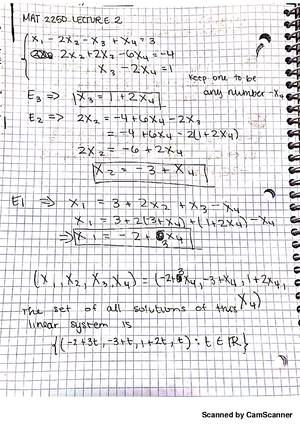 MAT 2250 LECTURE 2
x₁ - 2x₂ - x₃ + x₄ = 3
2x₂ + 2x₃ - 6x₄ = -4
x₃ - 2x₄ = 1
keep one to be
any number - x₄
E₃ => x₃ = 1 + 2x₄
E₂ => 2x₂ = -4 + 6x₄ - 2x₃
= -4 + 6x₄ - 2(1+2x₄)
2x₂ = -6 + 2x₄
x₂ = -3 + x₄
E1 => x₁ = 3 + 2x₂ + x₃ - x₄
x₁ = 3 + 2(-3+x₄) + (1+2x₄) - x₄
=> x₁ = -2 + 3x₄
(x₁, x₂, x₃, x₄) = (-2+3x₄, -3+x₄, 1+2x₄,
x₄)
The set of all solutions of this
linear system is
{(-2+3t, -3+t, 1+2t, t) : t ∈ ℝ}
Scanned by CamScanner